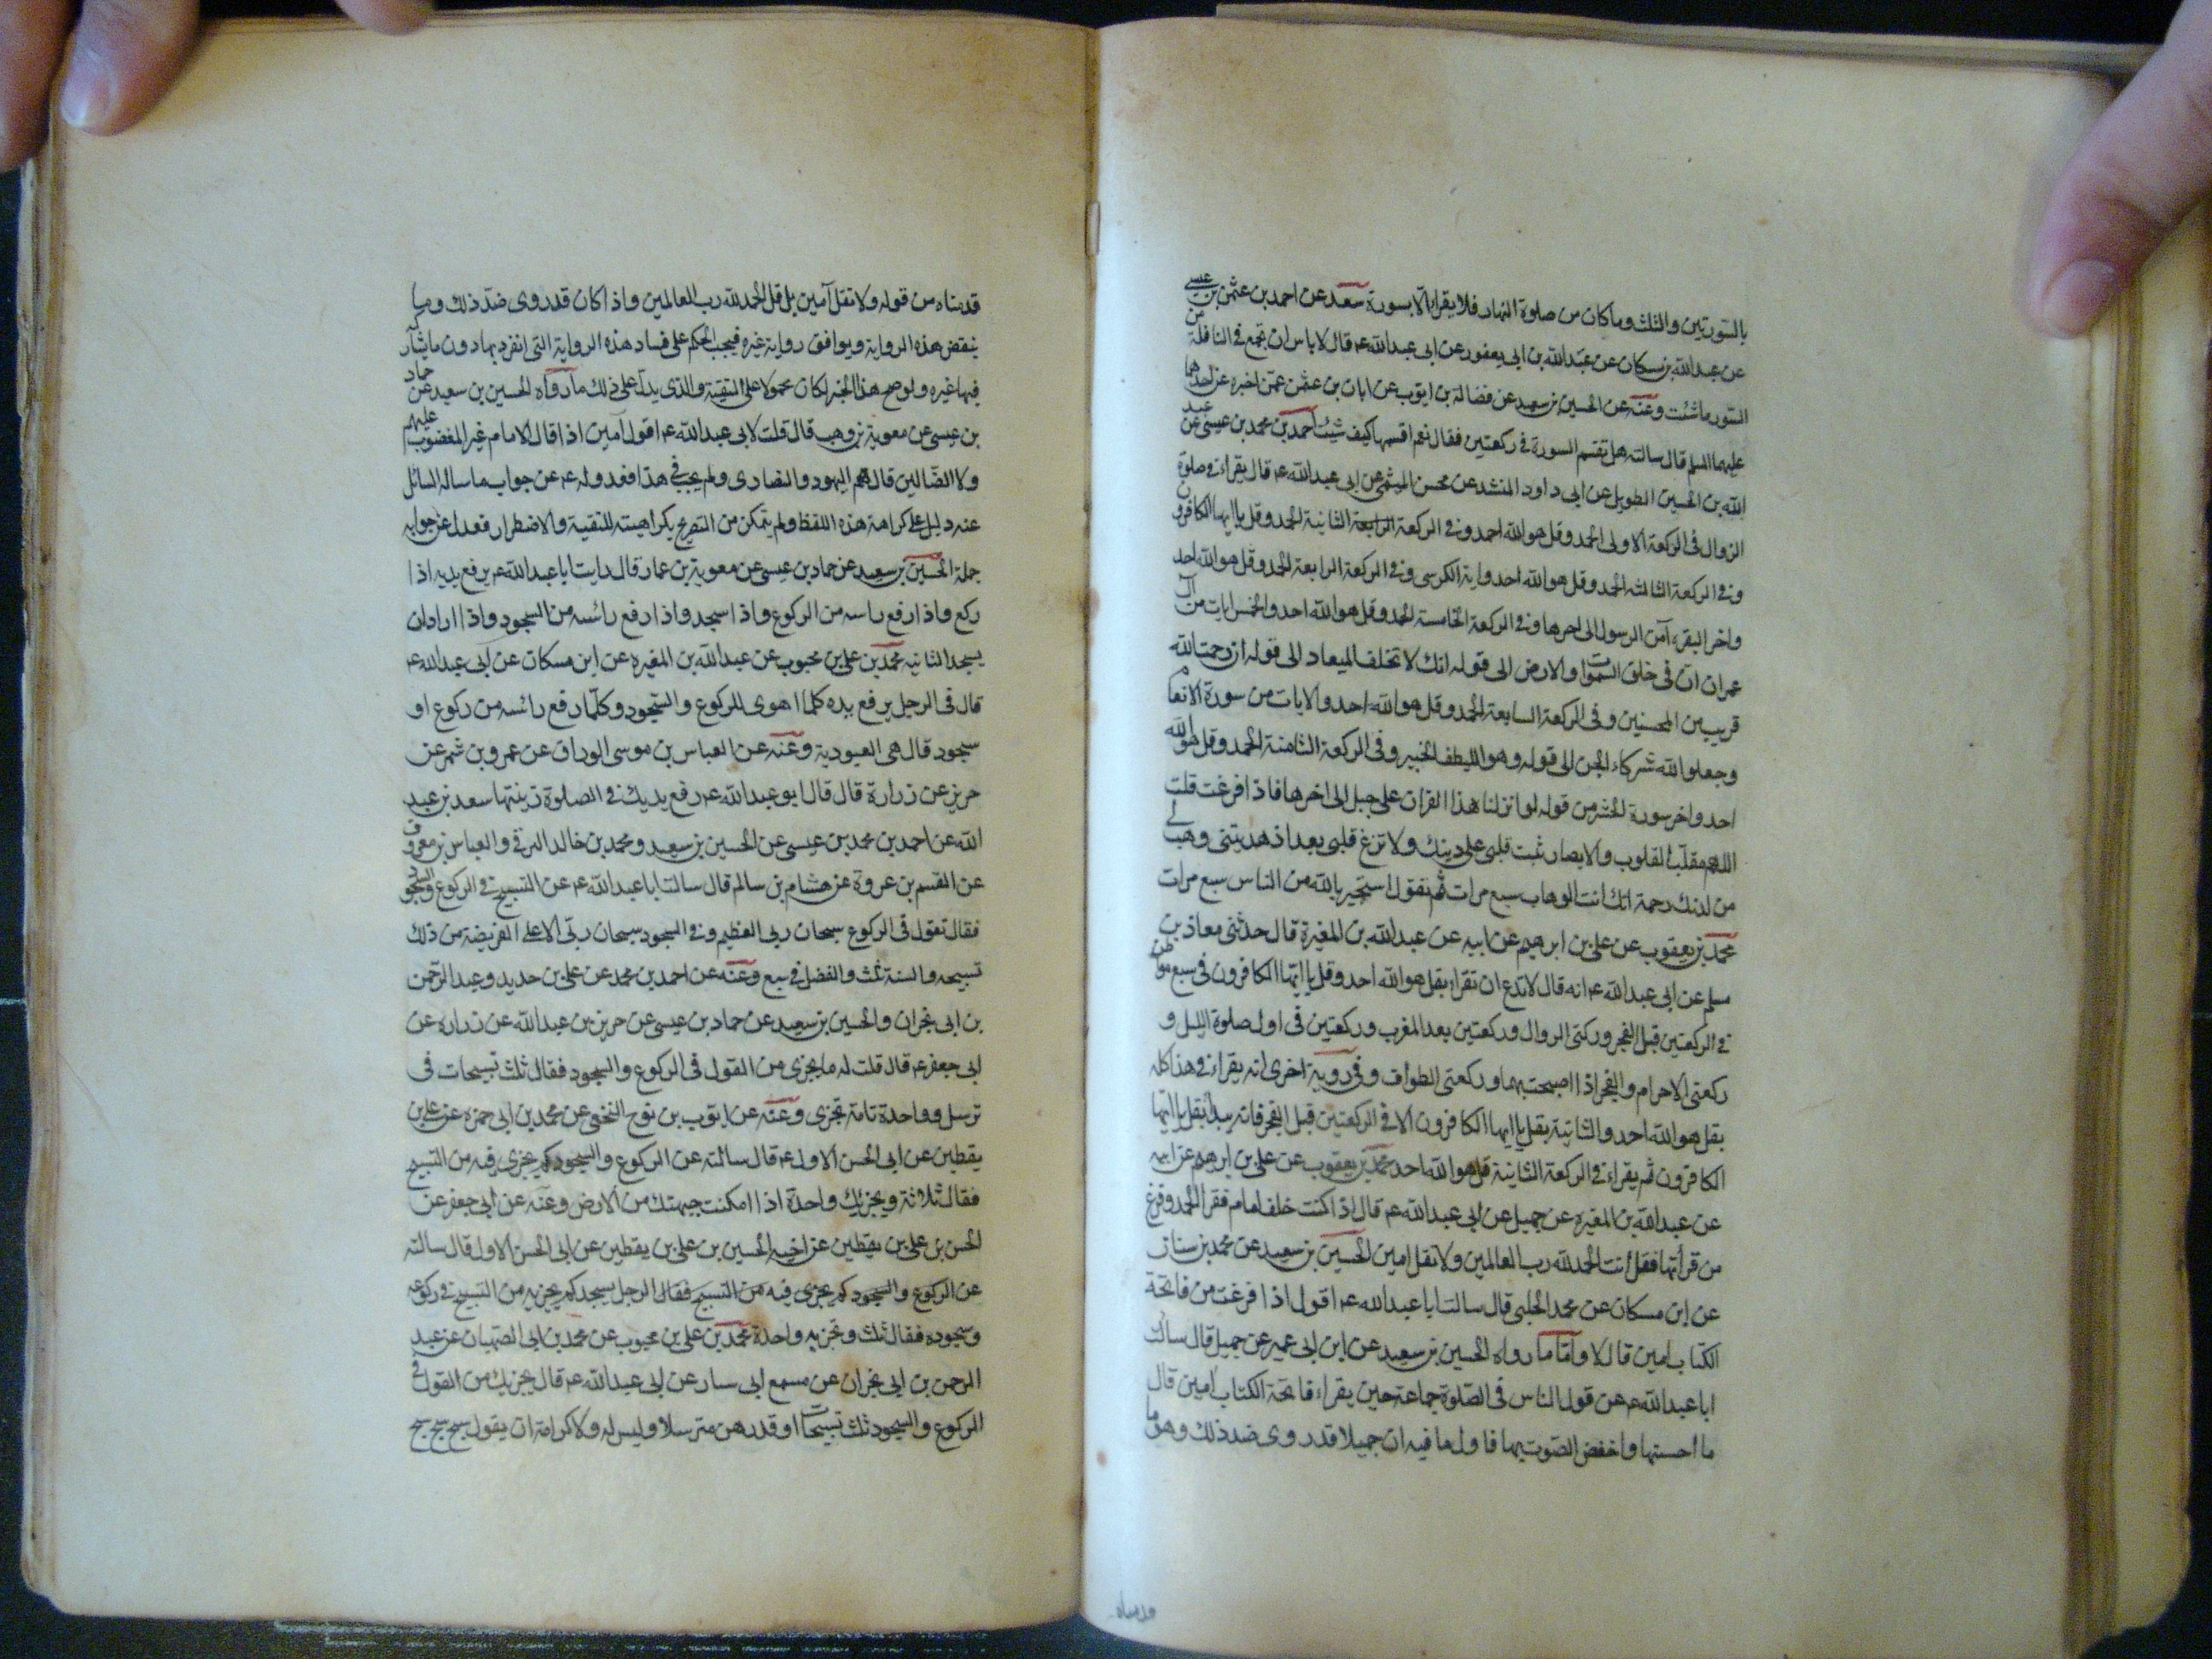 بالسورتين والثلث وما كان من صلوة النهار فلا يقراء الا بسورة سعد عن احمد بن عثمن بن عيسى
عن عبد الله بن مسكان عن عبد الله بن ابى يعفور عن ابى عبد الله ع قال لا باس ان تجمع فى النافلة من
السور ما شئت وعنه عن الحسين بن سعيد عن فضالة بن ايوب عن ابان بن عثمن عمن اخبره عن احدهما
عليهما السلم قال سالته هل تقسم السورة فى ركعتين فقال نعم اقسمها كيف شئت احمد بن محمد بن عيسى عن عبد
الله بن الحسين الطويل عن ابى داود المنشد عن محسن الميثمى عن ابى عبد الله ع قال يقراء فى صلوة
الزوال فى الركعة الاولى الحمد وقل هو الله احد وفى الركعة الرابعة الثانية الحمد وقل يا ايها الكافرون
وفى الركعة الثالثه الحمد وقل هو الله احد واية الكرسى وفى الركعة الرابعة الحمد وقل هو الله احد
واخر البقره آمن الرسول الى اخرها وفى الركعة الخامسة الحمد وقل هو الله احد والخمس ايات من آل
عمران ان فى خلق السموات والارض الى قوله انك لا تخلف الميعاد الى قوله ان رحمت الله
قريب من المحسنين وفى الركعة السابعة الحمد وقل هو الله احد والايات من سورة الانعام
وجعلوا لله شركاء الجن الى قوله وهو اللطيف الخبير وفى الركعة الثامنة الحمد وقل هو الله
احد واخر سورة الحشر من قوله لو انزلنا هذا القران على جبل الى اخرها فاذا فرغت قلت
اللهم مقلب القلوب والابصار ثبت قلبى على دينك ولا تزغ قلبى بعد اذ هديتنى وهب لى
من لدنك رحمة انك انت الوهاب سبع مرات ثم تقول استجير بالله من الناس سبع مرات
محمد بن يعقوب عن على بن ابرهيم عن ابيه عن عبد الله بن المغيرة قال حدثنى معاذ بن
مسلم عن ابى عبد الله ع انه قال لا تدع ان تقراء بقل هو الله احد وقل يا ايها الكافرون فى سبع مواطن
فى الركعتين قبل الفجر وركعتى الزوال وركعتين بعد المغرب وركعتين فى اول صلوة الليل و
ركعتى الاحرام والفجر اذا اصبحت بهما وركعتى الطواف وفى روية اخرى انه يقراء فى هذا كله
بقل هو الله احد والثانية بقل يا ايها الكافرون الا فى الركعتين قبل الفجر فانه يبدأ بقل يا ايها
الكافرون ثم يقراء فى الركعة الثانية قل هو الله احد محمد بن يعقوب عن على بن ابرهيم عن ابيه
عن عبد الله بن المغيره عن جميل عن ابى عبد الله ع قال اذا كنت خلف امام فقرا الحمد وفرغ
من قرأتها فقل انت الحمد لله رب العالمين ولا تقل امين الحسين بن سعيد عن محمد بن سنان
عن ابن مسكان عن محمد الحلبى قال سالت ابا عبد الله ع اقول اذا فرغت من فاتحة
الكتاب امين قال لا واما ما رواه الحسين بن سعيد عن ابن ابى عمير عن جميل قال سالت
ابا عبد الله ع عن قول الناس فى الصلوة جماعة حين يقراء فاتحة الكتاب امين قال
ما احسنها واخفض الصوت بها فاول ما فيه ان جميلا قد روى ضد ذلك وهو ما
قدمناه
قدمناه من قوله ولا تقل آمين بل قل الحمد لله رب العالمين واذا كان قد روى ضد ذلك وما
ينقض هذه الرواية ويوافق رواية غيره فيجب الحكم على فساد هذه الرواية التى انفرد بها دون ما يشارك
فيها غيره ولو صح هذا الخبر لكان محمولا على التقية والذى يدل على ذلك ما رواه الحسين بن سعيد عن حماد
بن عيسى عن معوية بن وهب قال قلت لابى عبد الله ع اقول آمين اذا قال الامام غير المغضوب عليهم
ولا الضالين قال هم اليهود والنصارى ولم يجب فى هذا فعدوله ع عن جواب ما ساله السائل
عنه دليل على كراهة هذه اللفظ ولم يتمكن من التصريح بكراهيته للتقية والاضطرار فعدل عن جوابه
جملة الحسين بن سعيد عن حماد بن عيسى عن معوية بن عمار قال رايت ابا عبد الله ع يرفع يديه اذا
ركع واذا رفع راسه من الركوع واذا سجد واذا رفع رائسه من السجود واذا اراد ان
يسجد الثانيه محمد بن على بن محبوب عن عبد الله بن المغيره عن ابن مسكان عن ابى عبد الله ع
قال فى الرجل يرفع يده كلما اهوى للركوع والسجود وكلما رفع رائسه من ركوع او
سجود قال هى العبودية وعنه عن العباس بن موسى الوراق عن عمرو بن شمر عن
حريز عن زرارة قال قال ابو عبد الله ع رفع يديك فى الصلوة زينتها سعد بن عبد
الله عن احمد بن محمد بن عيسى عن الحسين بن سعيد ومحمد بن خالد البرقى والعباس بن معروف
عن القسم بن عروة عن هشام بن سالم قال سالت ابا عبد الله ع عن التسبيح فى الركوع والسجود
فقال تقول فى الركوع سبحان ربى العظيم وفى السجود سبحان ربى الاعلى الفريضة من ذلك
تسبيحه والسنة ثلث والفضل فى سبع وعنه عن احمد بن محمد عن على بن حديد وعبد الرحمن
بن ابى نجران والحسين بن سعيد عن حماد بن عيسى عن حريز بن عبد الله عن زراره عن
ابى جعفر ع قال قلت له ما يجزى من القول فى الركوع والسجود فقال ثلث تسبيحات فى
ترسل وواحدة تامة تجزى وعنه عن ايوب بن نوح النخعى عن محمد بن ابى حمزه عن على بن
يقطين عن ابى الحسن الاول ع قال سالته عن الركوع والسجود كم يجزى فيه من التسبيح
فقال ثلاثة ويجزيك واحدة اذا امكنت جبهتك من الارض وعنه عن ابى جعفر عن
الحسن بن على بن يقطين عن اخيه الحسين بن على بن يقطين عن ابى الحسن الاول قال سالته
عن الركوع والسجود كم يجزى فيه من التسبيح فقال الرجل يسجد كم يجزيه من التسبيح فى ركوعه
وسجوده فقال ثلث وتجزيه واحدة محمد بن على بن محبوب عن محمد بن ابى الصهبان عن عبد
الرحمن بن ابى نجران عن مسمع ابى سيار عن ابى عبد الله ع قال يجزيك من القول فى
الركوع والسجود ثلث تسبيحات او قدرهن مترسلا وليس له ولا كرامة ان يقول سبح سبح سبح